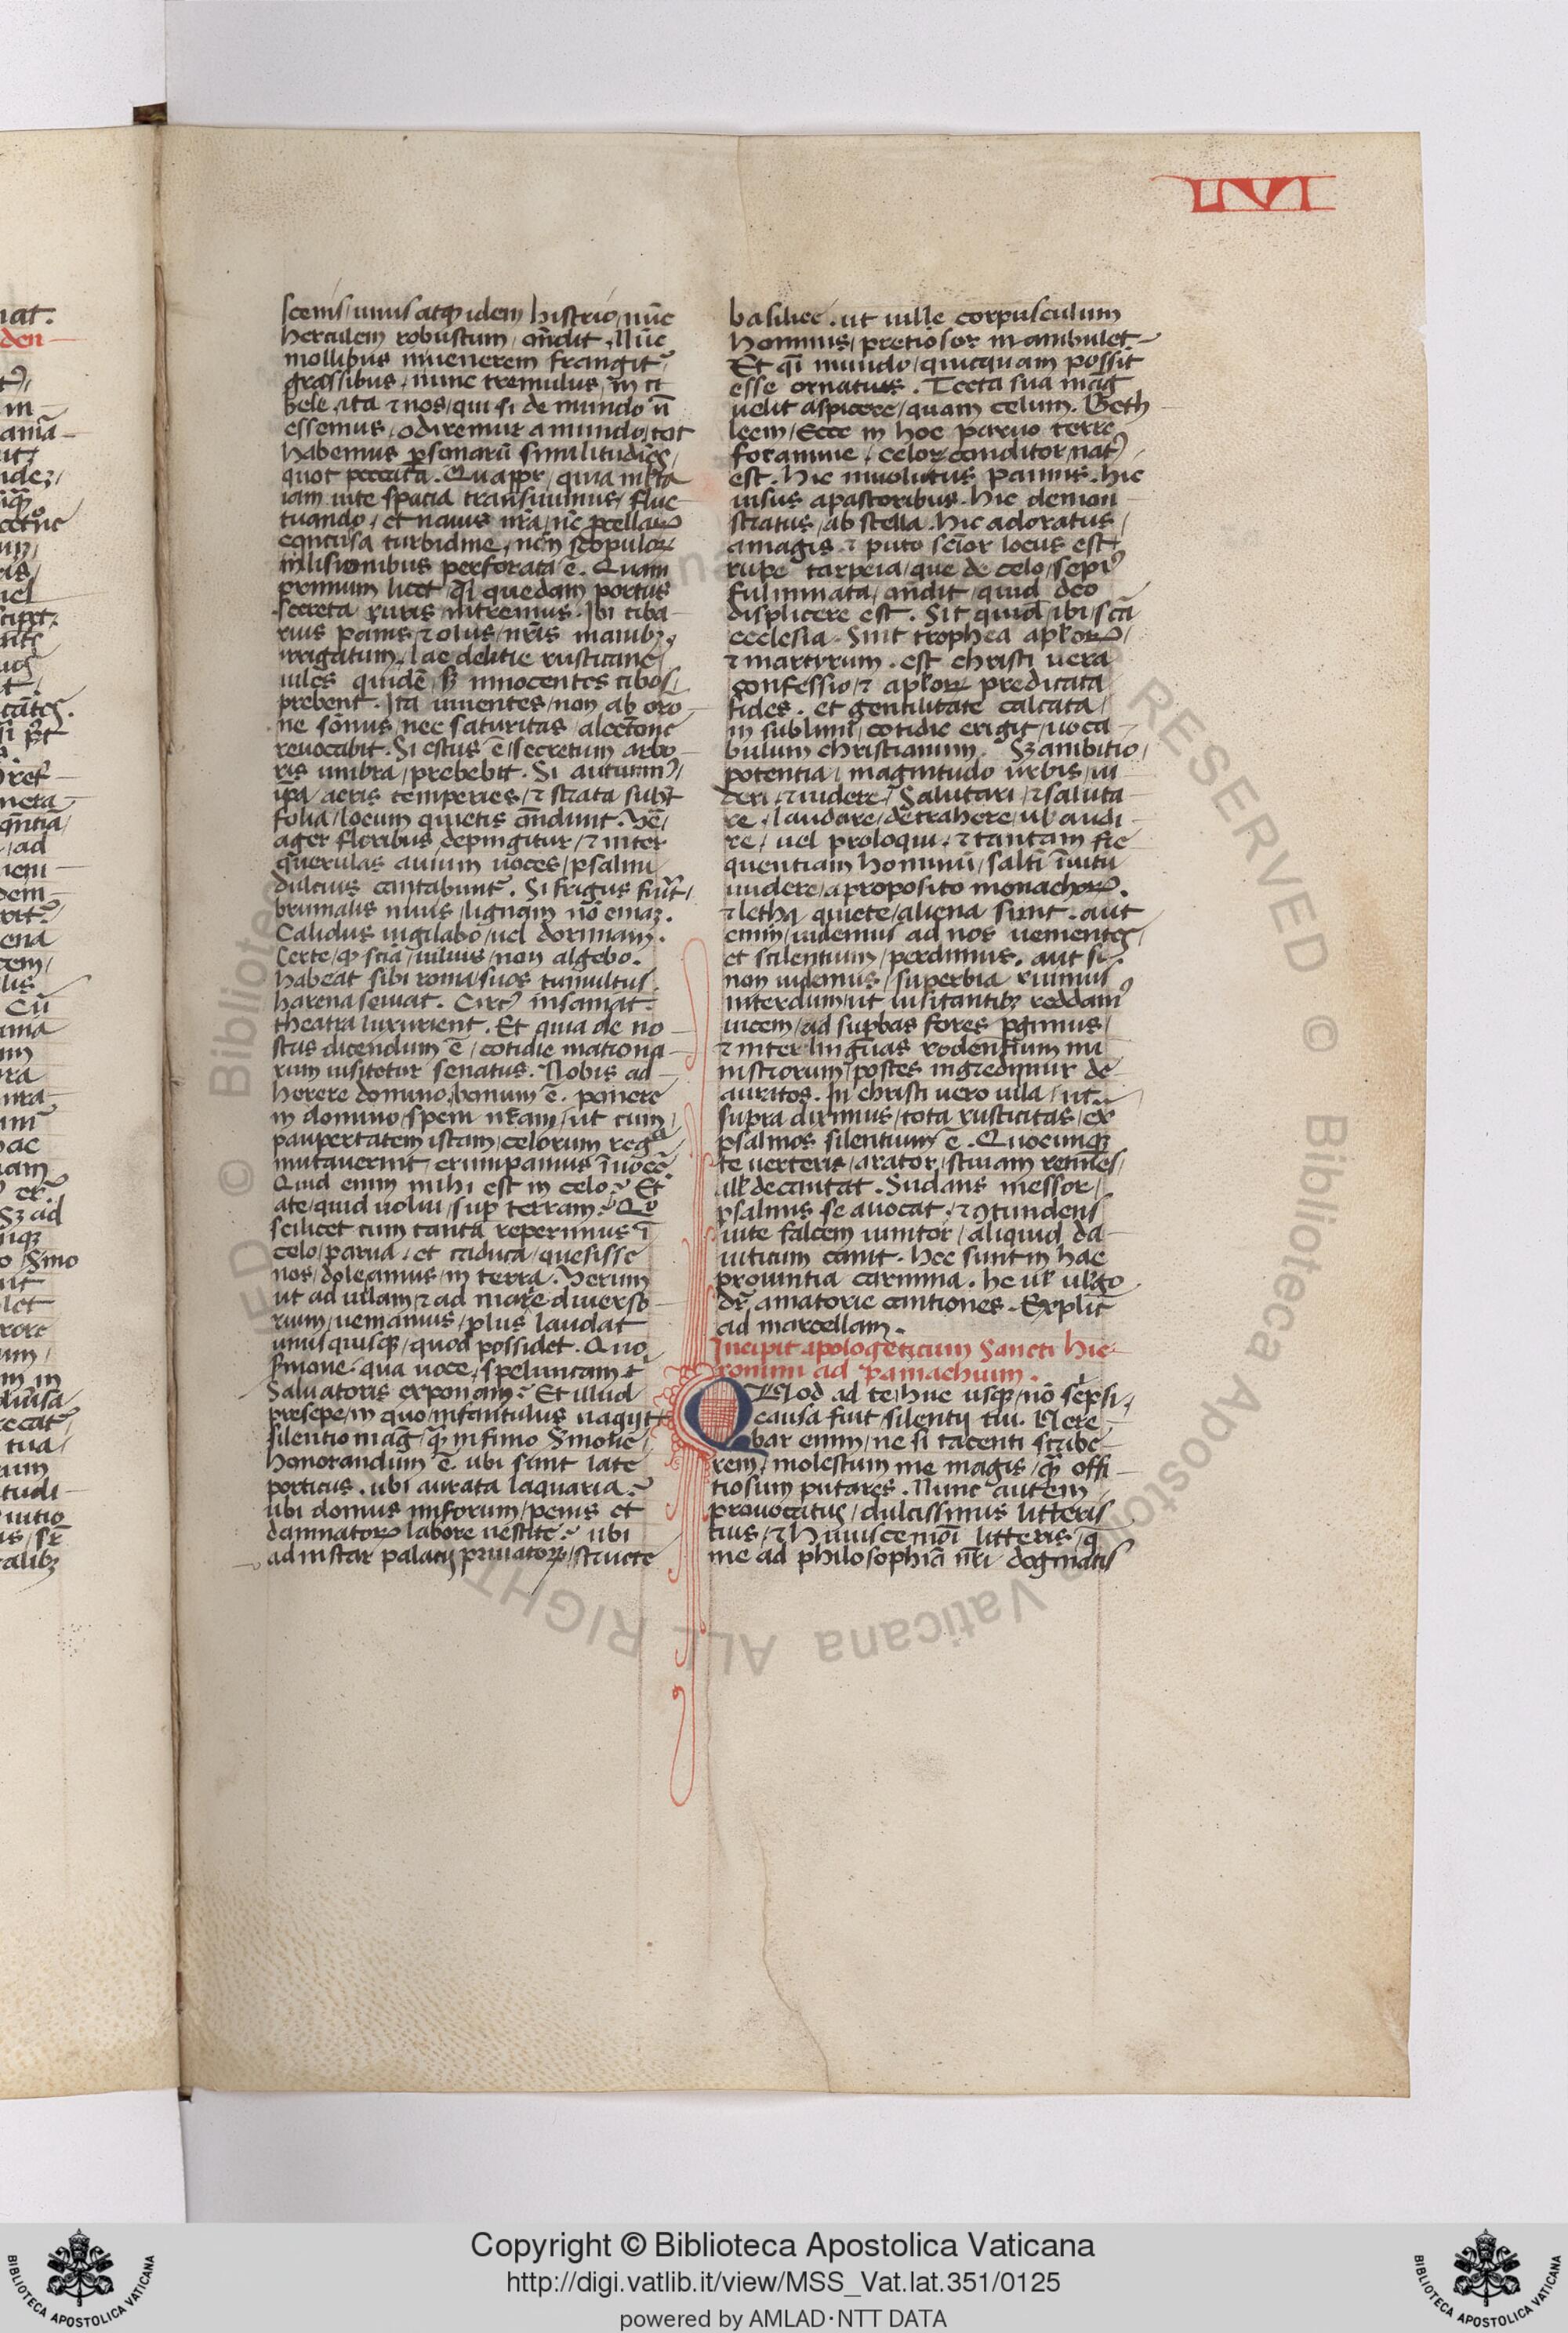 LVI
scenis/unus atq̨ idem histrio/nūc
herculem robustum/ oñdit. Nūc
mollibus inuenerem frangit᷑
gressibus/nunc tremulus/in ci
bele. ita ⁊ nos/qui si de mundo n̄
essemus/odiremur a mundo/tot
habemus ꝑsonarū similitudīes/
quot peccata. Quappr̄/quia ml̄ta
iam uite spacia transiuimus/fluc
tuando/et nauis nr̄a/nc̄ ꝓcellarꝝ
concusa turbidine/nūc scopulorꝝ
inlisionibus perforata ē. Quam
primum licet/q̄si quedam portus
secreta ruris intremus. Ibi ciba
rius panis/⁊ olus/nr̄is manibꝫ
irrigatum. lac delitie rusticane/
uiles quidē/sꝫ innocentes cibos/
prebent. Ita uiuentes/non ab oro
ne sōnus/nec saturitas/a lectione
reuocabit. Si estus ē/secretum arbo
ris umbra/prebebit. Si autumnꝰ/
ipa aeris temperies/⁊ strata subt̄
folia/locum quietis oñdunt. Vē̄/
ager floribus depingitur/⁊ inter
querulas auium uoces/psalmi
dulcius cantabunt᷑. Si frigus fuīt/
brumalis niuis/lignam nō emaꝫ.
Calidus uigilabo/uel dormiam.
Certe/q̨ sciā/uilius/non algebo.
habeat sibi roma/suos tumultus.
harena seuiat. Circꝰ insaniat.
theatra luxurient. Et quia de no
stris dicendum ē/cotidie matrona
rum uisitetur senatus. Nobis ad
herere domino/bonum ē. ponere
in domino/spem nr̄am/ut cum
paupertatem istam/celorum regᵃ
mutauerint/erumpamus ī uocē.
Quid enim mihi est in celo? Et
a te/quid uolui/suꝑ terram? Qꝰ
scilicet cum tanta reperimus ī
celo/parua/et caduca/quesisse
nos/doleamus/in terra. Verum
ut ad uillam/⁊ ad marie diuerso
rium/ueniamus/plus laudat
unusquisq̨/quod possidet. Quo
s̄mone/qua uoce/speluncam t̄
Saluatoris exponam? Et illud
presepe/in quo/infantulus uagijt
silentio mag̃/q̨ infimo s̄mone/
honorandum ē. ubi sunt late
porticus. ubi aurata laquaria?
ubi domus miserorum/penis et
damnatorꝝ labore uestite? ubi
ad instar palatij priuatorꝝ/structe
basilice. ut uille corpusculum
hominis/pretiosor inambulet
Et q̄i mundo/quicquam possit
esse ornatius. Tecta sua mag̃
uelit aspicere/quam celum. Beth
leem/Ecce in hoc paruo terre
foramine/celorꝝ conditor/natꝰ
est. hic inuolutus pannis. hic
uisus a pastoribus. hic demon
stratus/ab stella. hic adoratus/
a magis. ⁊ puto sc̄ior locus est
rupe tarpeia/que de celo/sepiꝰ
fulminata/oñdit/quid deo
displicere est. Sit quid ibi/sc̄a
ecclesia. Sint trophea apl̄orꝝ/
⁊ martyrum. est christi uera
confessio/⁊ apl̄orꝝ predicata
fides. et gentilitate calcata/
in sublimi/cotidie erigit/uoca
bulum christianum. Sꝫ ambitio/
potentia/magnitudo urbis/ui
deri/⁊ uidere/Salutari/⁊ saluta
re/laudare/detrahere/ul̄ audi
re/uel proloqui/⁊ tantam fre
quentiam hominū/saltī īuitū
uidere/a proposito monachorꝝ.
⁊ letha quiete/aliena sunt. aut
enim/uidemus ad nos uenientes/
et scilentium/perdimus. aut si
non uidemus/superbia ruimus
Interdum/ut uisitantibꝫ reddamꝰ
uicem/ad suꝑbas fores ꝑgimus/
⁊ inter linguas rodentium mi
nistrorum/postes ingredimur de
auratos. In christi uero uilla/ut
supra diximus/tota rusticitas/ex
psalmos silentium ē. Quocunq̨
te uerteris/arator/stiuam retinēs/
all̄a decantat. Sudans messor/
psalmis se auocat/⁊ ꝯtundens
uite falcem uinitor/aliquid da
uiticum canit. hec sunt in hac
prouintia carmina. he ul̄ uulgo
dr̄ amatorie cantiones. Explic̄
ad marcellam.
Incipit apologeticum Sancti hie
ronimi ad pamachium.
QUod ad te/huc usq̨/nō sc̄psi/
causa fuit/silentij tui. Vere
bar enim/ne si tacenti scribe
rem/molestum me magis/q̨ offi
tiosum putares. Nunc autem
prouocatus/dulcissimus litteris
tuis/⁊ huiuscemōi litteris/q̄
me ad philosophiā nr̄i dogmatis
Copyright © Biblioteca Apostolica Vaticana
http://digi.vatlib.it/view/MSS_Vat.lat.351/0125
powered by AMLAD·NTT DATA